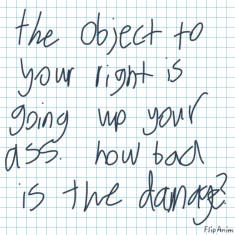 the object to
your right is
going up your
ass. how bad
is the damage?
FlipAnim